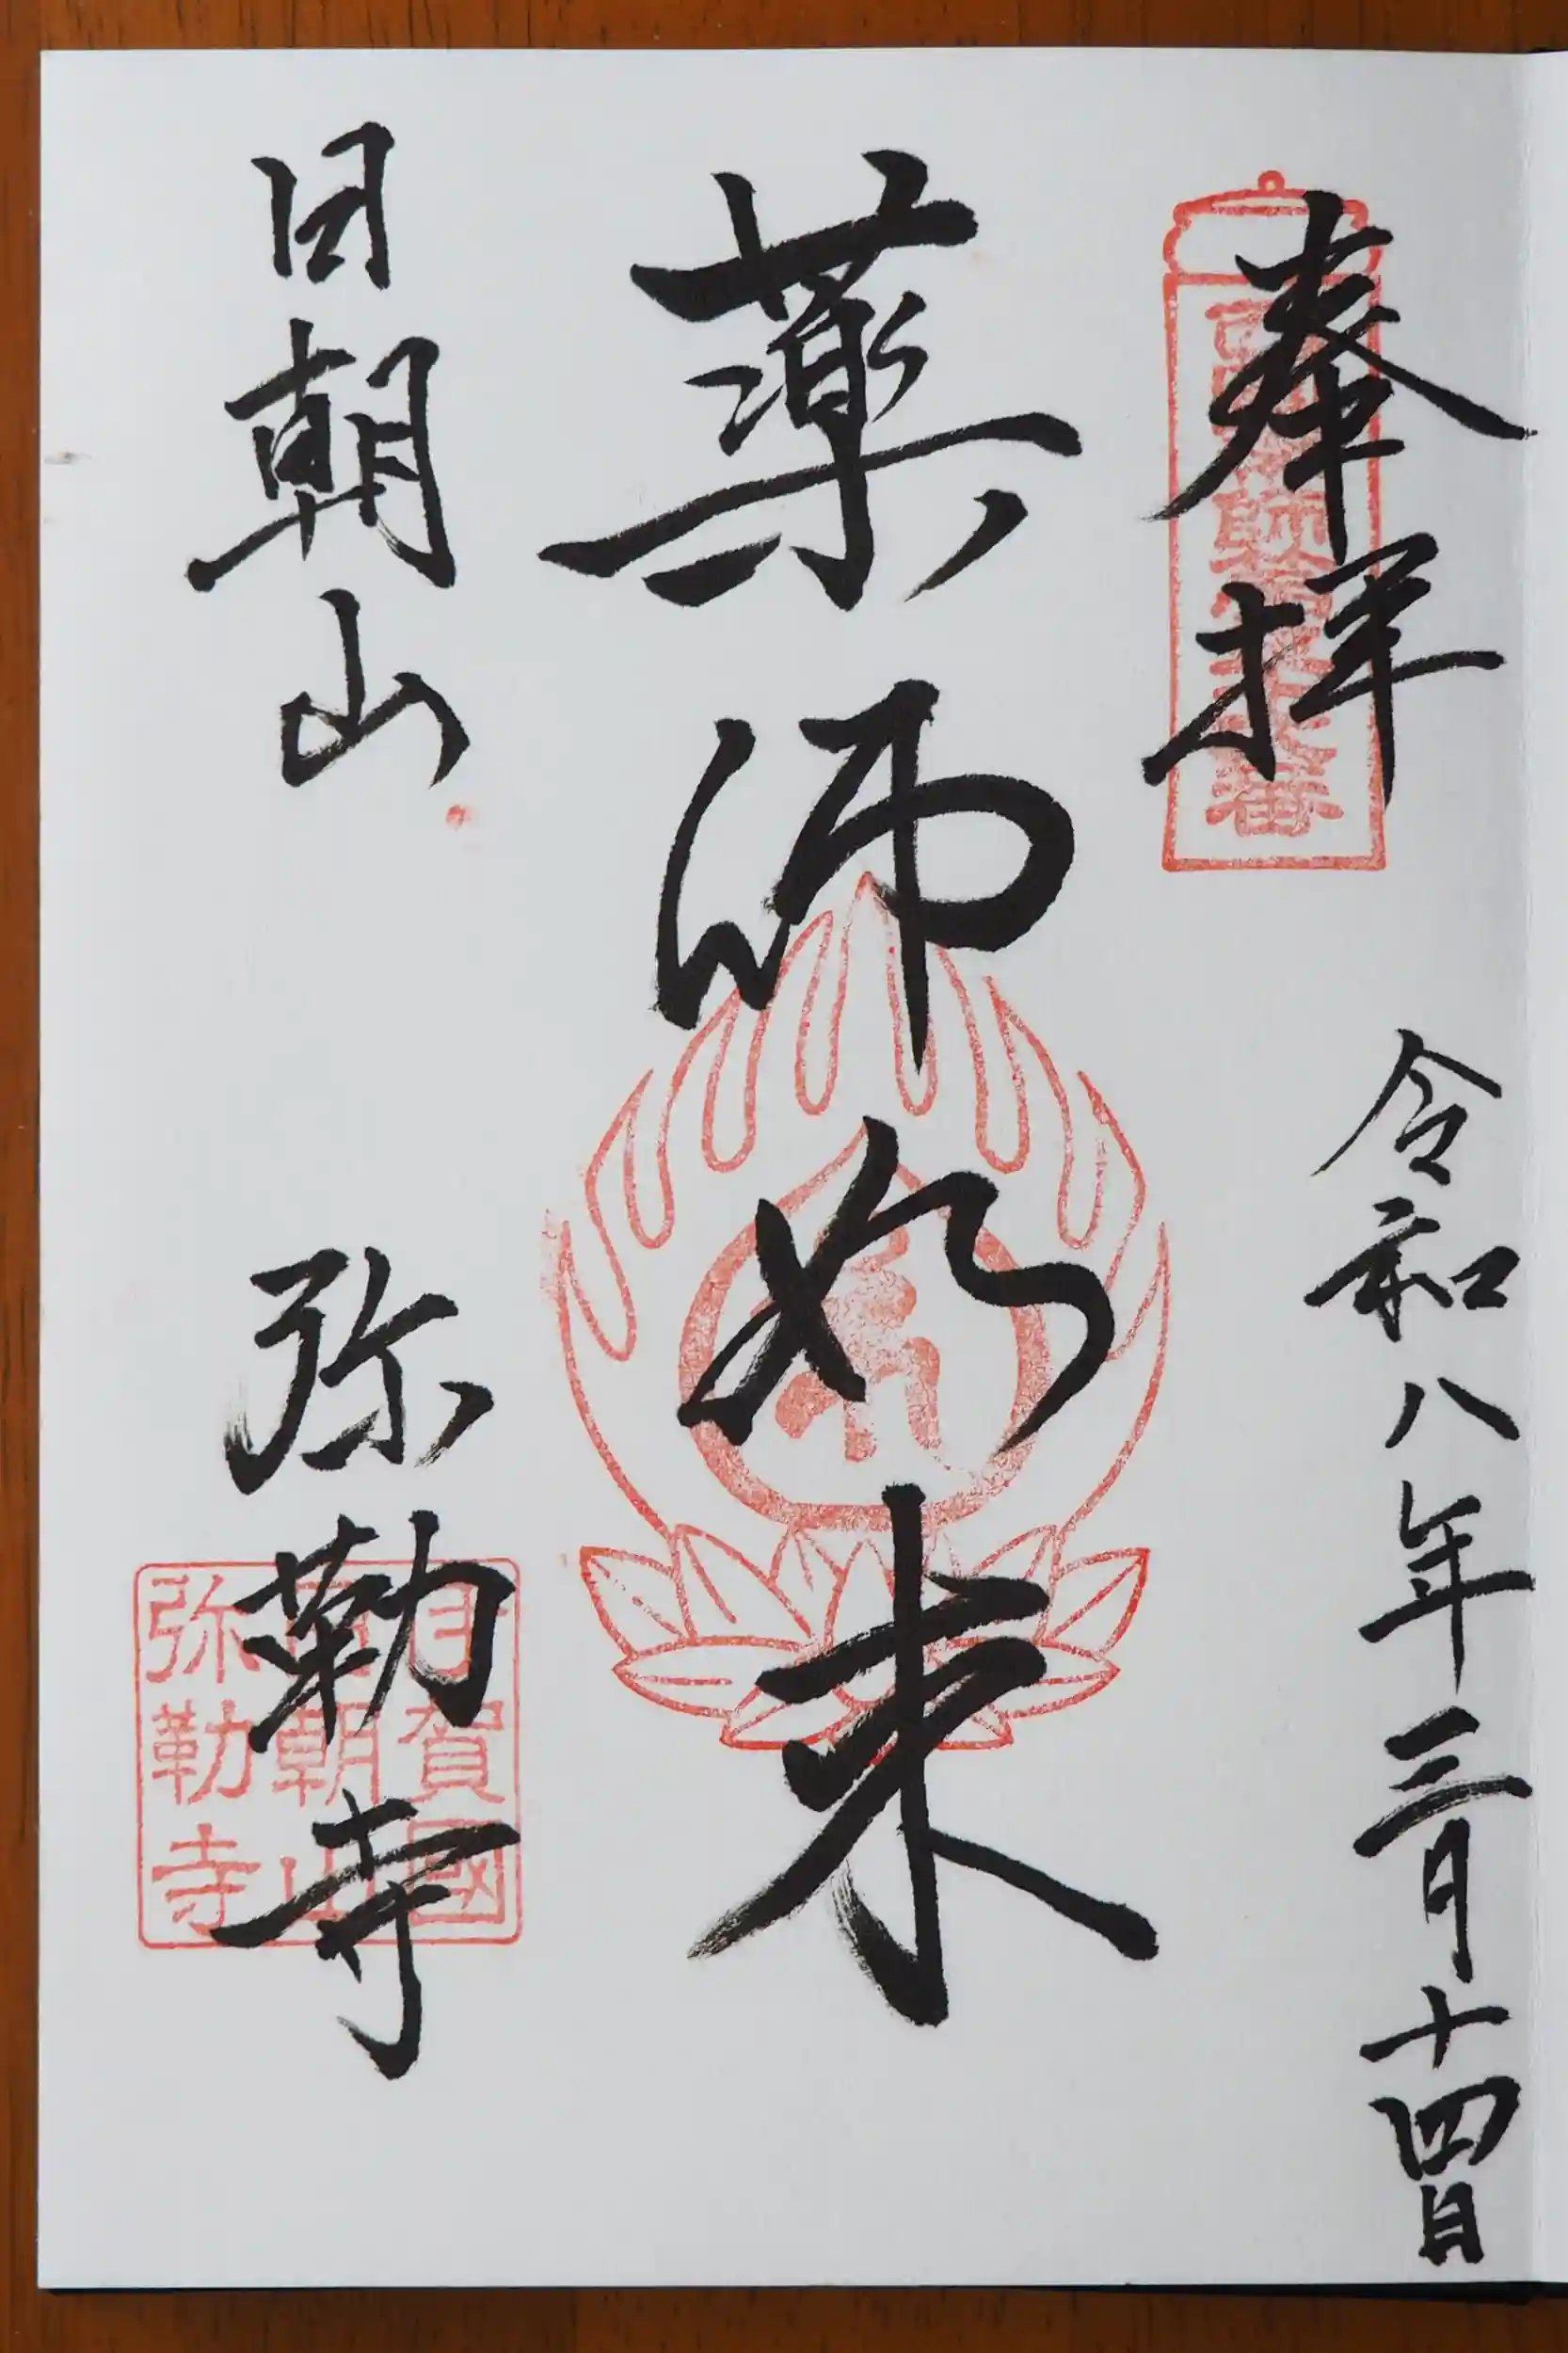 奉拝
師 番
令和八年三月十四日
薬師如来
日朝山
弥勒寺
賀國
朝山
弥勒寺